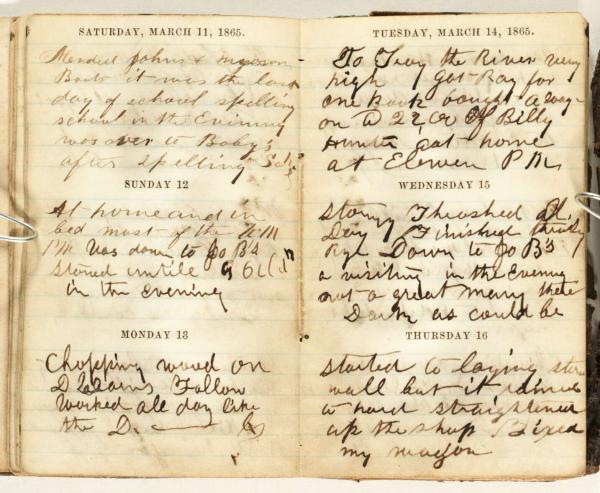 SATURDAY, MARCH 11, 1865.
Mended Johns & my own
Boots it was the last
day of school spelling
school in the Evening
was over to Bobys
after spelling
SUNDAY 12
At home and in
bed most of the A M
PM Was down to Jo B's
stoned untile 9 Oclk
in the evening
MONDAY 13
Chopping wood on
Fallow
Worked all day like
the D.
TUESDAY, MARCH 14, 1865.
To Troy the River very
high got Pay for
one bark bought a wag
on a 22, of Billy
Hunter got home
at Eleven P M
WEDNESDAY 15
Stormy Thrashed all
Day Finished thrashing
Rye Down to Jo B's
a visiting in the Evening
not a great many there
Dark as could be
THURSDAY 16
started to laying stone
wall but it rained
to hard straightened
up the shop Fixed
my wagon